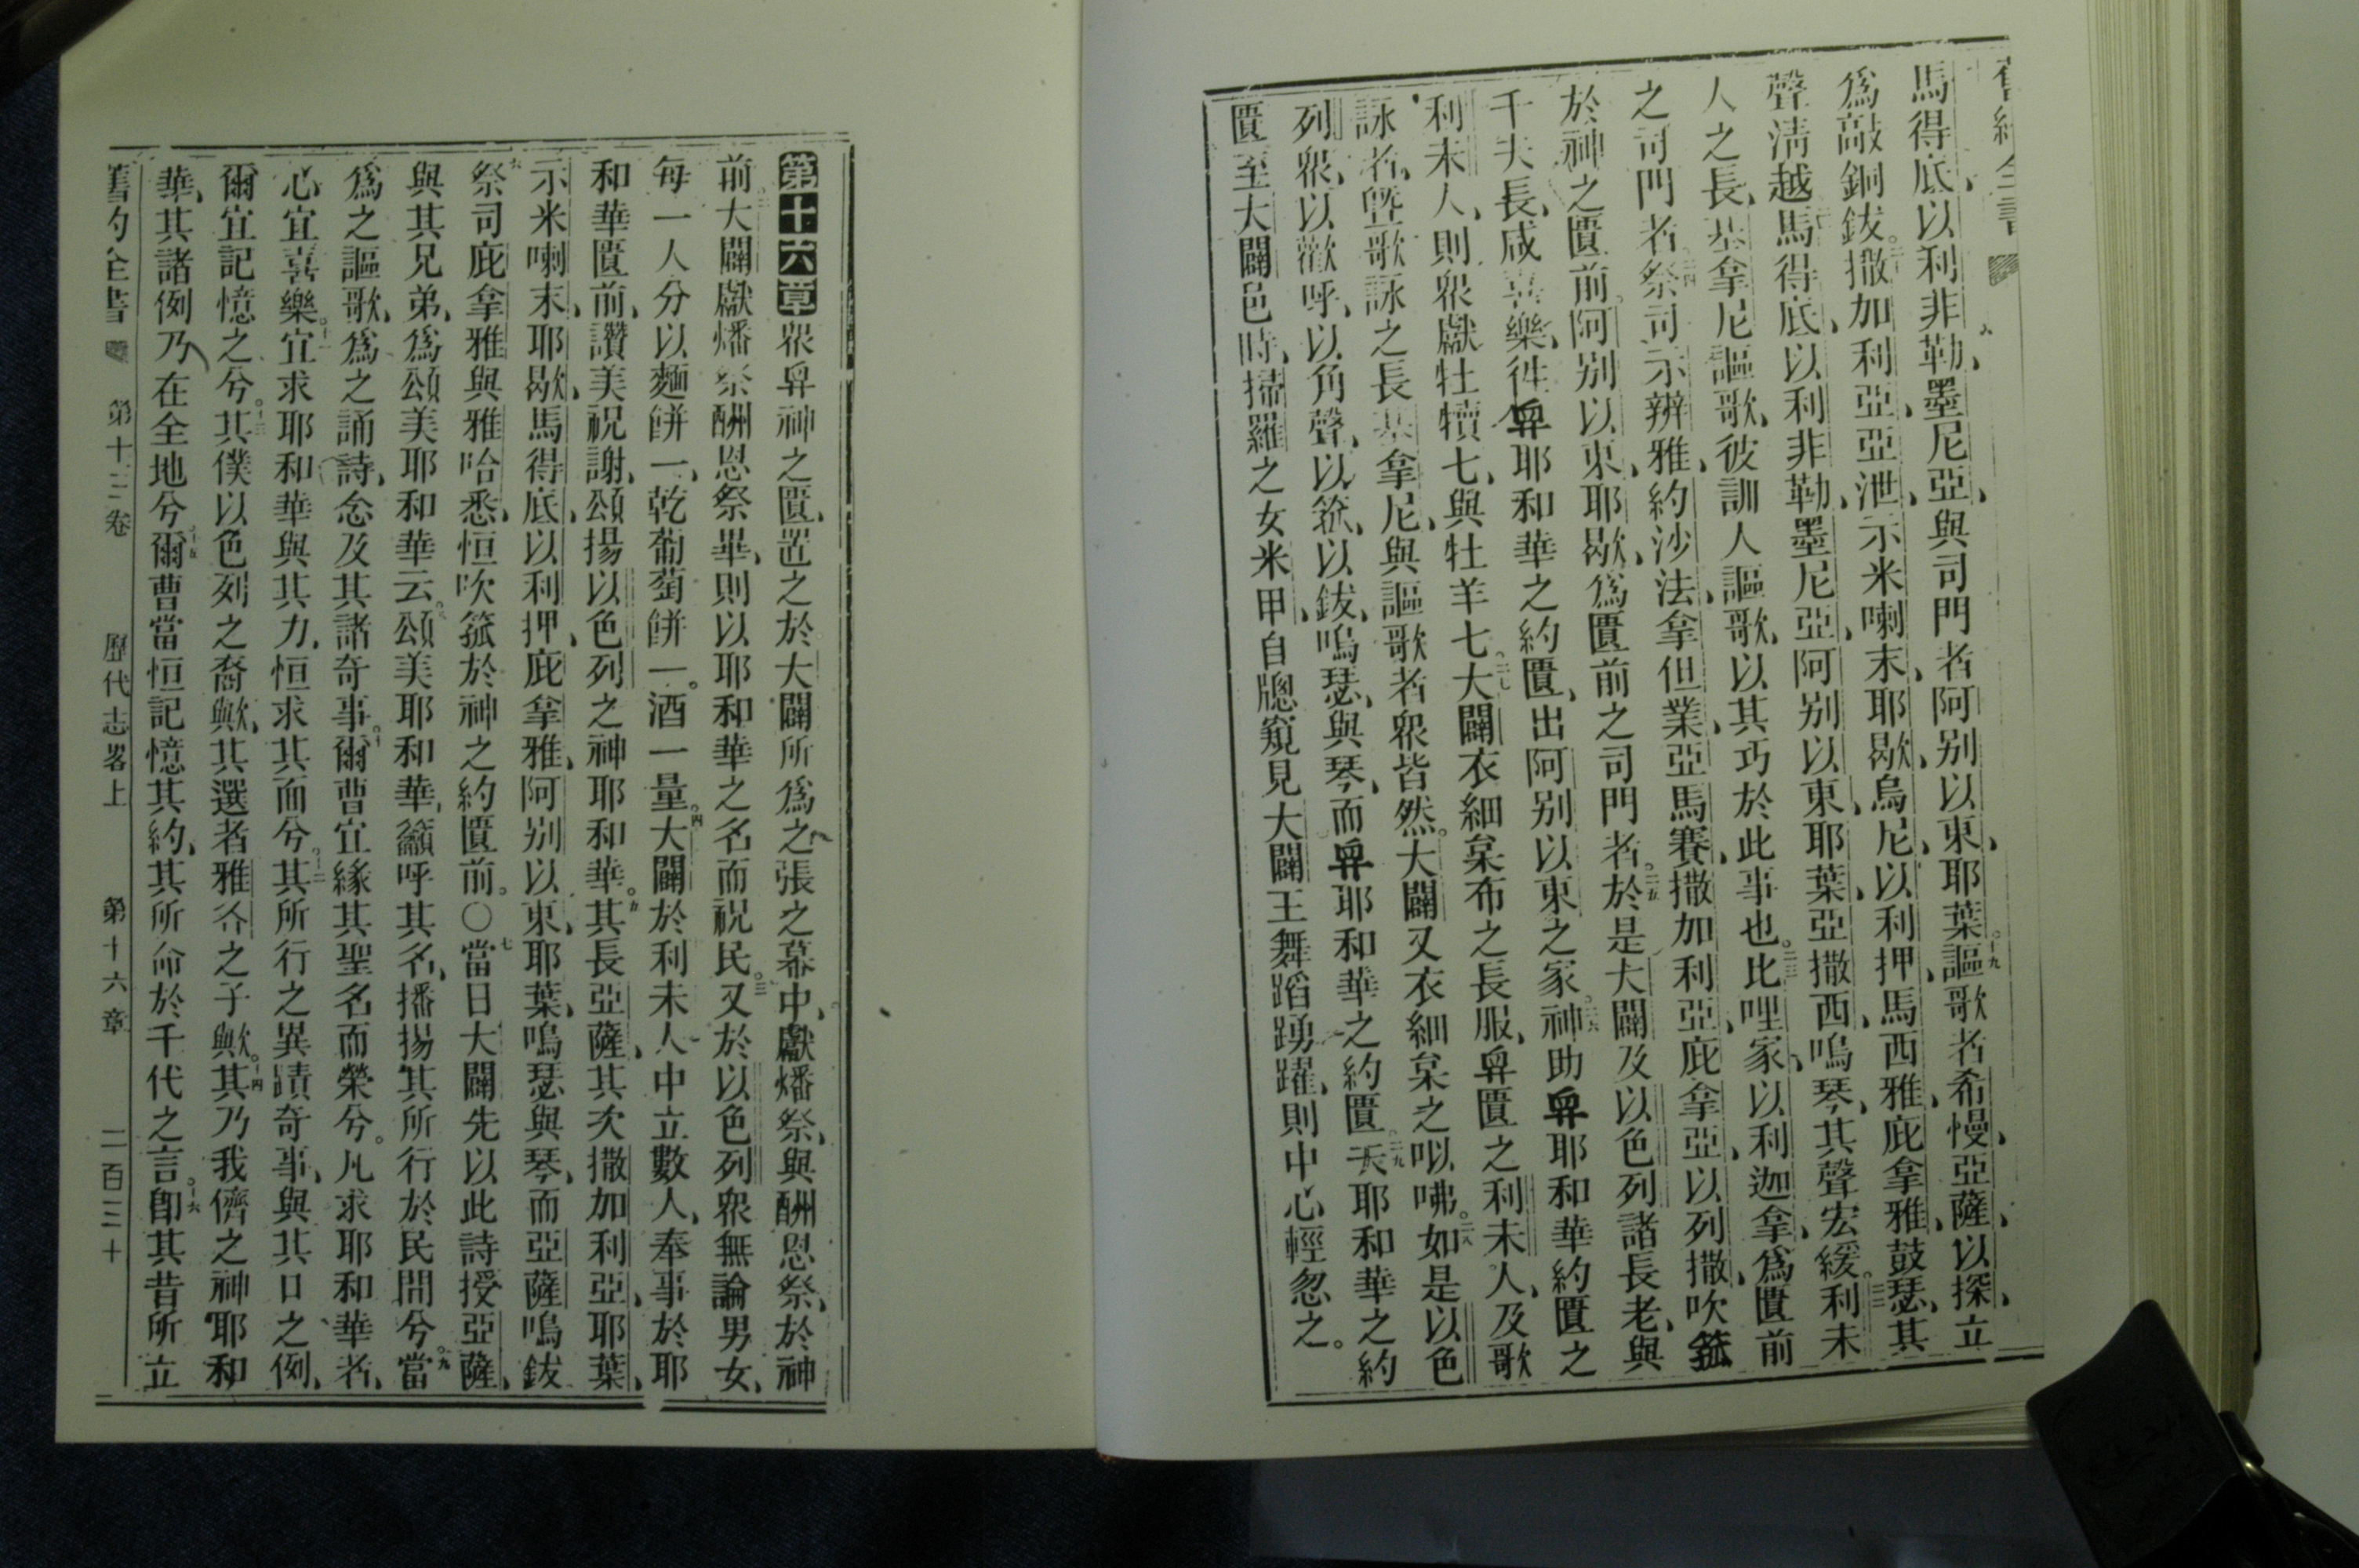 舊約全書
馬得底、以利非勒、墨尼亞、與司門者阿别以東、耶葉。十九謳歌者希慢、亞薩、以探、立
爲敲銅鈸。二十撒加利亞、亞泄、示米喇末、耶歇、烏尼、以利押、馬西雅、庇拿雅、鼓瑟、其
聲淸越。馬得底、以利非勒、墨尼亞、阿别以東、耶葉、亞撒西、鳴琴、其聲宏緩。二二利未
人之長、基拿尼謳歌、彼訓人謳歌、以其巧於此事也。二三比哩家、以利迦拿、爲匱前
之司門者。二四祭司示辨雅、約沙法、拿但業、亞馬賽、撒加利亞、庇拿亞、以列撒、吹箛
於神之匱前。阿别以東、耶歇、爲匱前之司門者。二五於是大闢及以色列諸長老、與
千夫長、咸喜樂、徃舁耶和華之約匱、出阿别以東之家。二六神助舁耶和華約匱之
利未人、則衆獻牡犢七、與牡羊七。二七大闢衣細枲布之長服、舁匱之利未人、及歌
詠者、曁歌詠之長基拿尼、與謳歌者衆皆然。大闢又衣細枲之㕽咈。二八如是以色
列衆、以歡呼、以角聲、以箛、以鈸、鳴瑟、與琴、而舁耶和華之約匱。二九夫耶和華之約
匱至大闢邑時、掃羅之女米甲、自牕窺見大闢王舞蹈踴躍、則中心輕忽之。
第十六章衆舁神之匱、置之於大闢所爲之張之幕中、獻燔祭、與酬恩祭、於神
前。二大闢獻燔祭酬恩祭畢、則以耶和華之名而祝民。三又於以色列衆無論男女、
每一人分以麵餅一、乾葡萄餅一。酒一量。四大闢於利未人中立數人、奉事於耶
和華匱前、讚美祝謝、頌揚以色列之神耶和華。五其長亞薩、其次撒加利亞、耶葉、
示米喇末、耶歇、馬得底、以利押、庇拿雅、阿别以東、耶葉、鳴瑟與琴、而亞薩鳴鈸
六祭司庇拿雅與雅哈悉、恒吹箛於神之約匱前。○七當日大闢先以此詩授亞薩、
與其兄弟、爲頌美耶和華云。八頌美耶和華、籲呼其名、播揚其所行於民間兮。九當
爲之謳歌、爲之誦詩、念及其諸奇事。十爾曹宜緣其聖名而榮兮。凡求耶和華者、
心宜喜樂。十一宜求耶和華與其力、恒求其面兮。十二其所行之異蹟奇事、與其口之例、
爾宜記憶之兮。十三其僕以色列之裔歟、其選者雅各之子歟。十四其乃我儕之神耶和
華、其諸例乃在全地兮。十五爾曹當恒記憶其約、其所命於千代之言。十六卽其昔所立
舊約全書 第十三卷 歷代志畧上 第十六章 二百三十